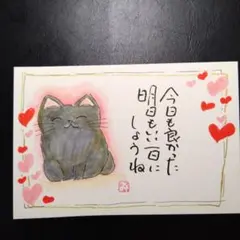 今日も良かった
明日もいい一日に
しようね